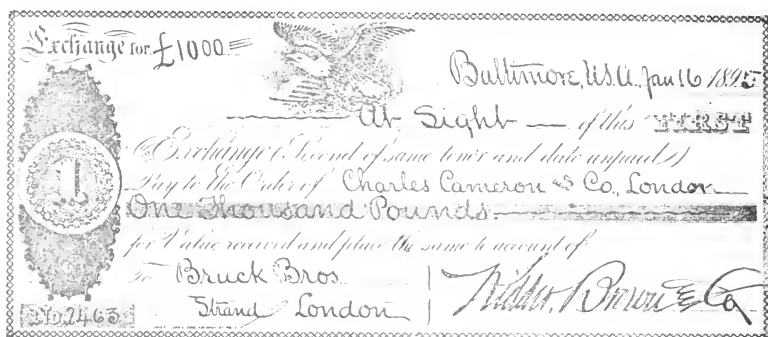 Exchange for £1000
Baltimore, U.S.A., Jan 16 1895
At Sight of this FIRST
of Exchange (Second of same tenor and date unpaid)
Pay to the Order of Charles Cameron & Co., London
One Thousand Pounds
for Value received and place the same to account of
To Bruck Bros.
Strand London
Brown & Co
No 2463
1